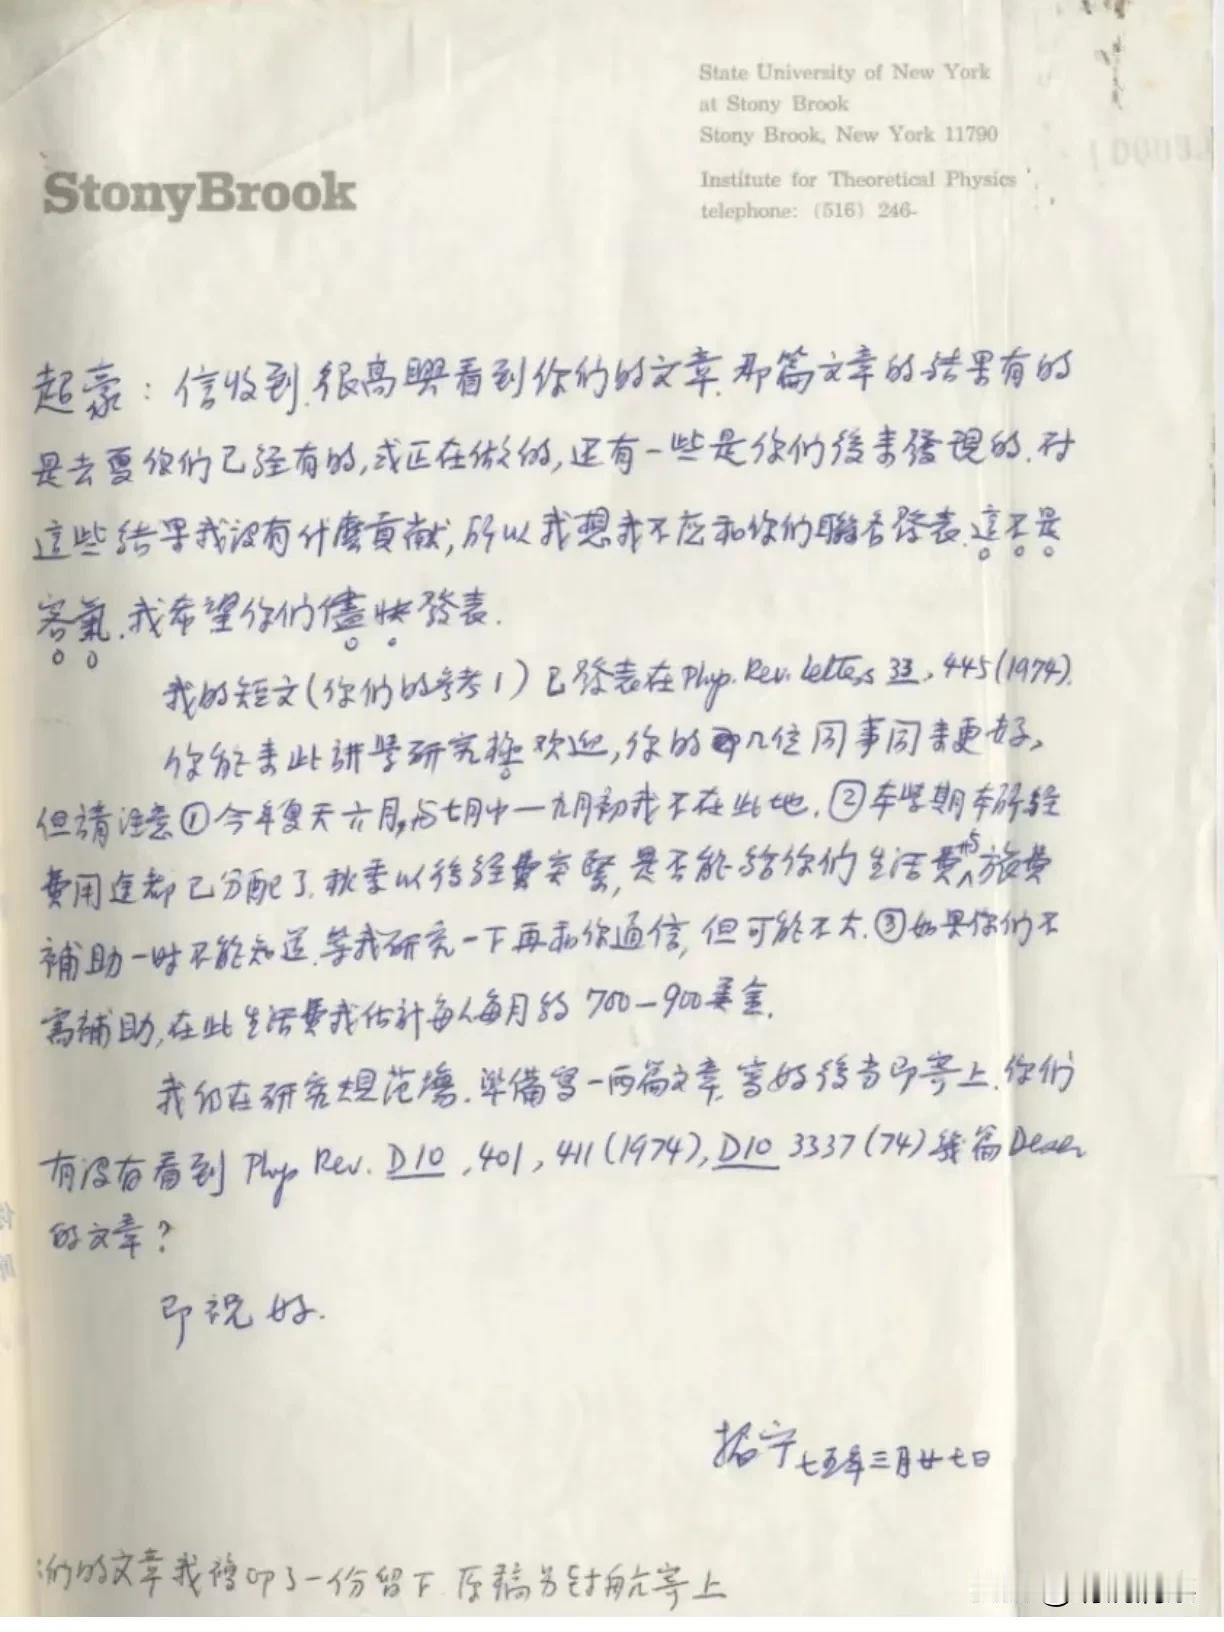 State University of New York
at Stony Brook
Stony Brook, New York 11790
Institute for Theoretical Physics
telephone: (516) 246-
StonyBrook
起豪：信收到.很高興看到你们的文章.那篇文章的结果有的
是去夏你们已经有的,或正在做的,还有一些是你们後来發現的.对
這些结果我没有什麽貢献,所以我想我不应和你们联名發表.這不是
客氣.我希望你们儘快發表.
我的短文(你们的参考1)已發表在Phys. Rev. Letters 33, 445(1974).
你能来此讲學研究極欢迎,你的几位同事同来更好,
但請注意①今年夏天六月,与七月中一九月初我不在此地.②本學期本所经
費用途都已分配了.秋季以後经費奕緊,是否能给你们生活費与旅費
補助一时不能知道.等我研究一下再和你通信,但可能不大.③如果你们不
需補助,在此生活費我估计每人每月约700-900美金.
我们在研究規范塲.準備写一两篇文章.写好後当即寄上.你们
有没有看到 Phys Rev. D10, 401, 411(1974), D10 3337(74)幾篇Deser
的文章?
即祝好.
振宁 七五年三月廿七日
们的文章我複印了一份留下.原稿另封航寄上